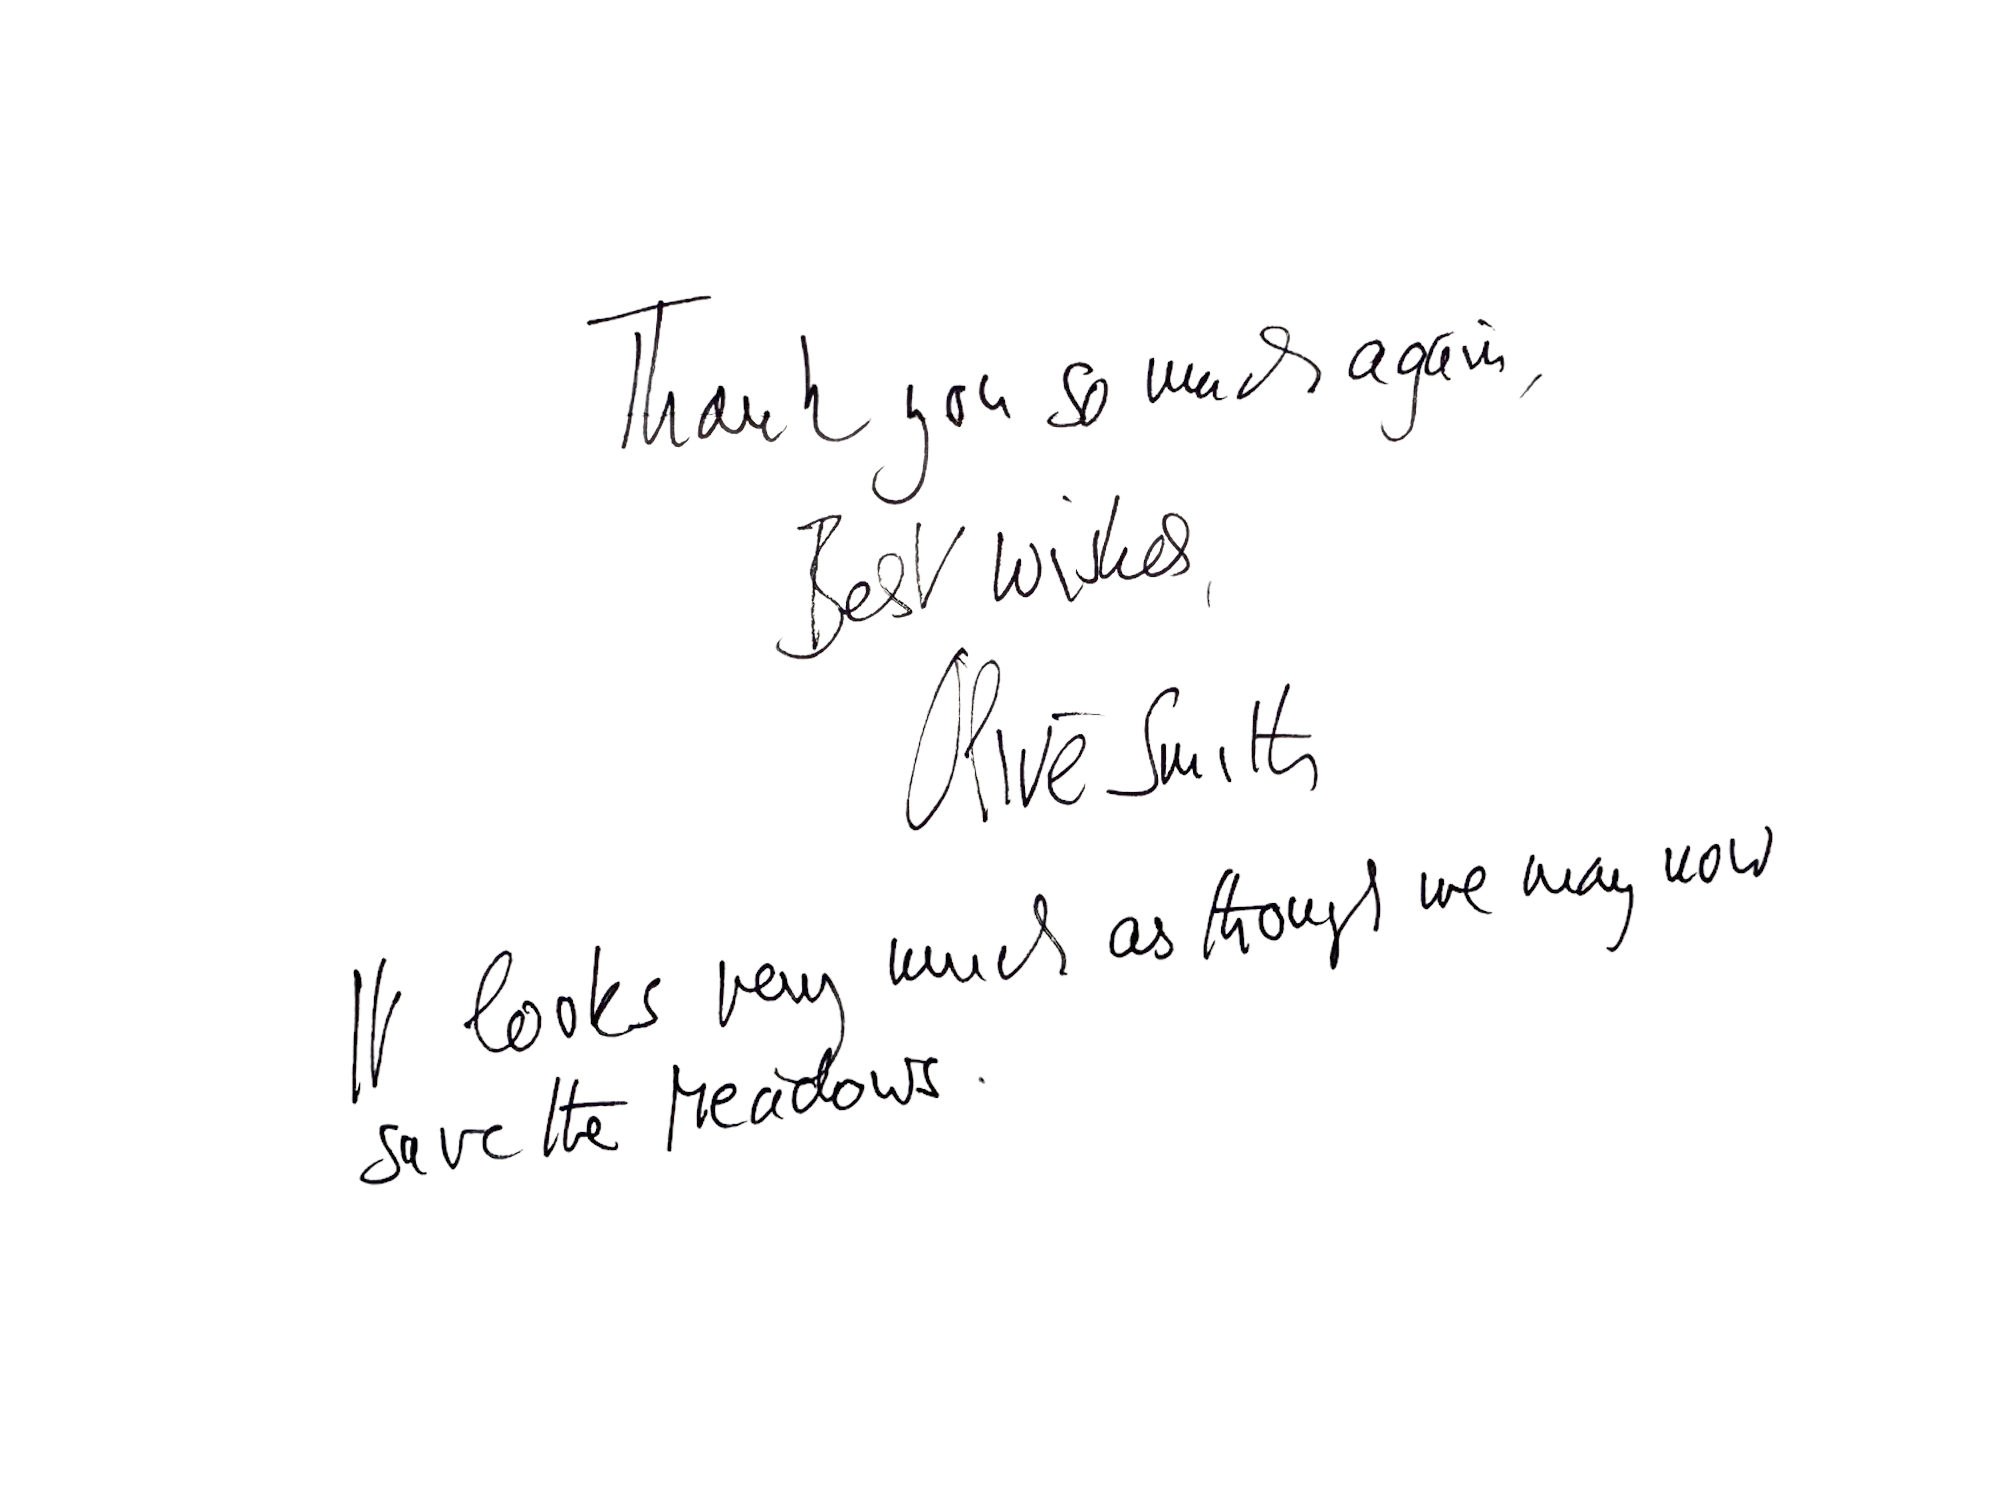 Thank you so much again,
Best wishes,
Olive Smith
It looks very much as though we may now
save the Meadows.